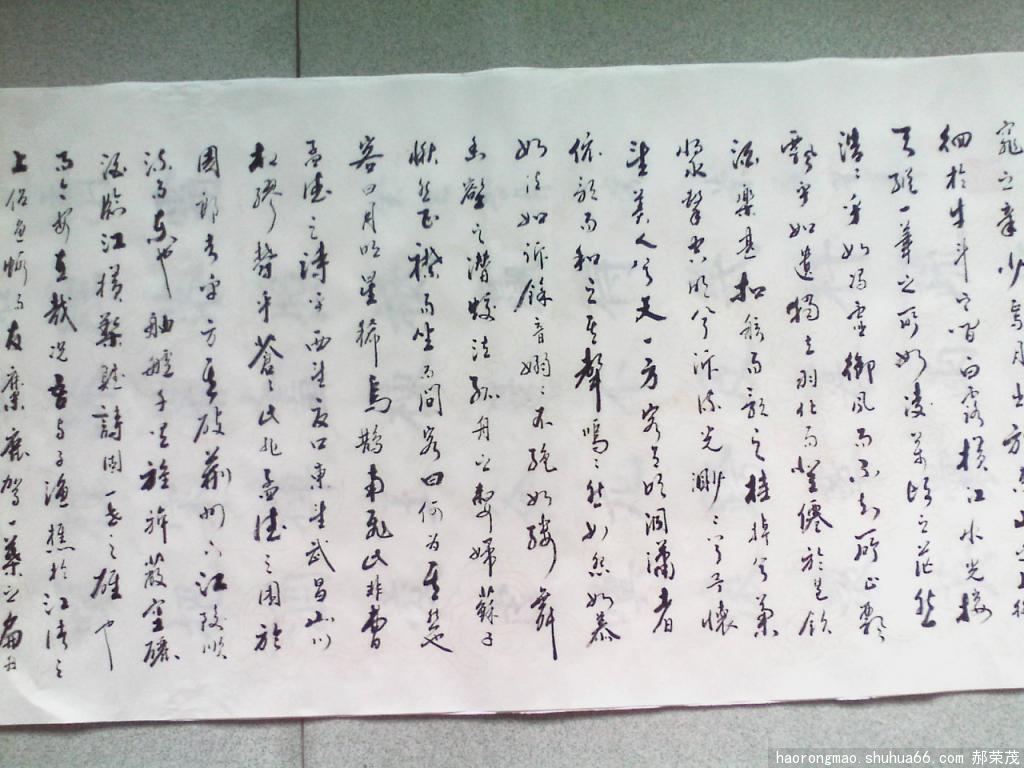 窕之章少焉月出於东山之上徘
徊於牛斗之间白露横江水光接
天縱一葦之所如凌萬頃之茫然
浩々乎如馮虚御風而不知所止飄
飄乎如遺獨立羽化而登僊於是飲
酒樂甚扣舷而歌之桂棹兮蘭
槳擊空明兮泝流光渺々兮予懷
望美人兮天一方客有吹洞簫者
倚歌而和之其聲嗚々然如怨如慕
如泣如訴餘音嫋々不絶如縷舞
幽壑之潜蛟泣孤舟之嫠婦蘇子
愀然正襟而坐而問客曰何为其然也
客曰月明星稀烏鵲南飛此非曹
孟德之詩乎西望夏口東望武昌山川
相繆鬱乎蒼々此非孟德之困於
周郎者乎方其破荆州下江陵順
流而东也舳艫千里旌旗蔽空釃
酒臨江横槊赋詩固一世之雄也
而今安在哉况吾与子漁樵於江渚之
上侣鱼蝦而友麋鹿駕一葉之扁舟
haorongmao.shuhua66.com 郝荣茂